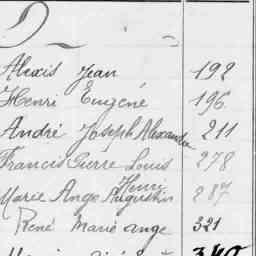 D
Alexis Jean 192
Henri Eugéne 196
André Joseph Alexandre 211
Francis Pierre Louis 278
Henri
Marie Ange Augustin 287
René Marie ange 321
340